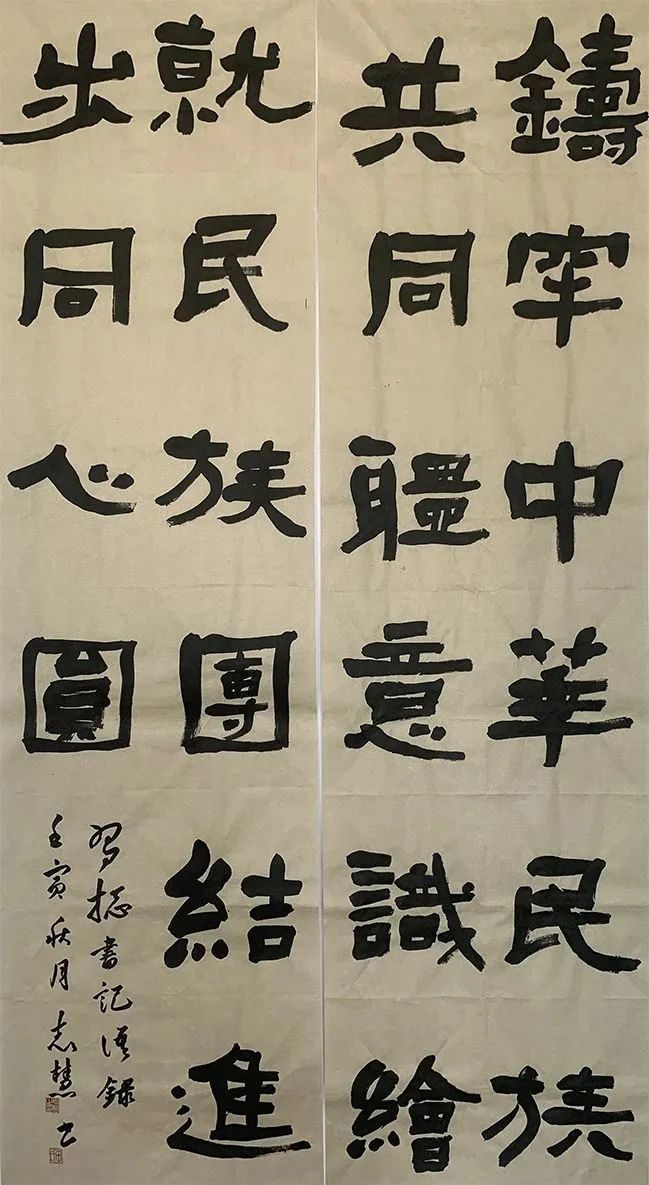 鑄牢中華民族
共同軆意識繪
就民族團結進
步同心圓
習總書記語錄
壬寅秋月志慧書